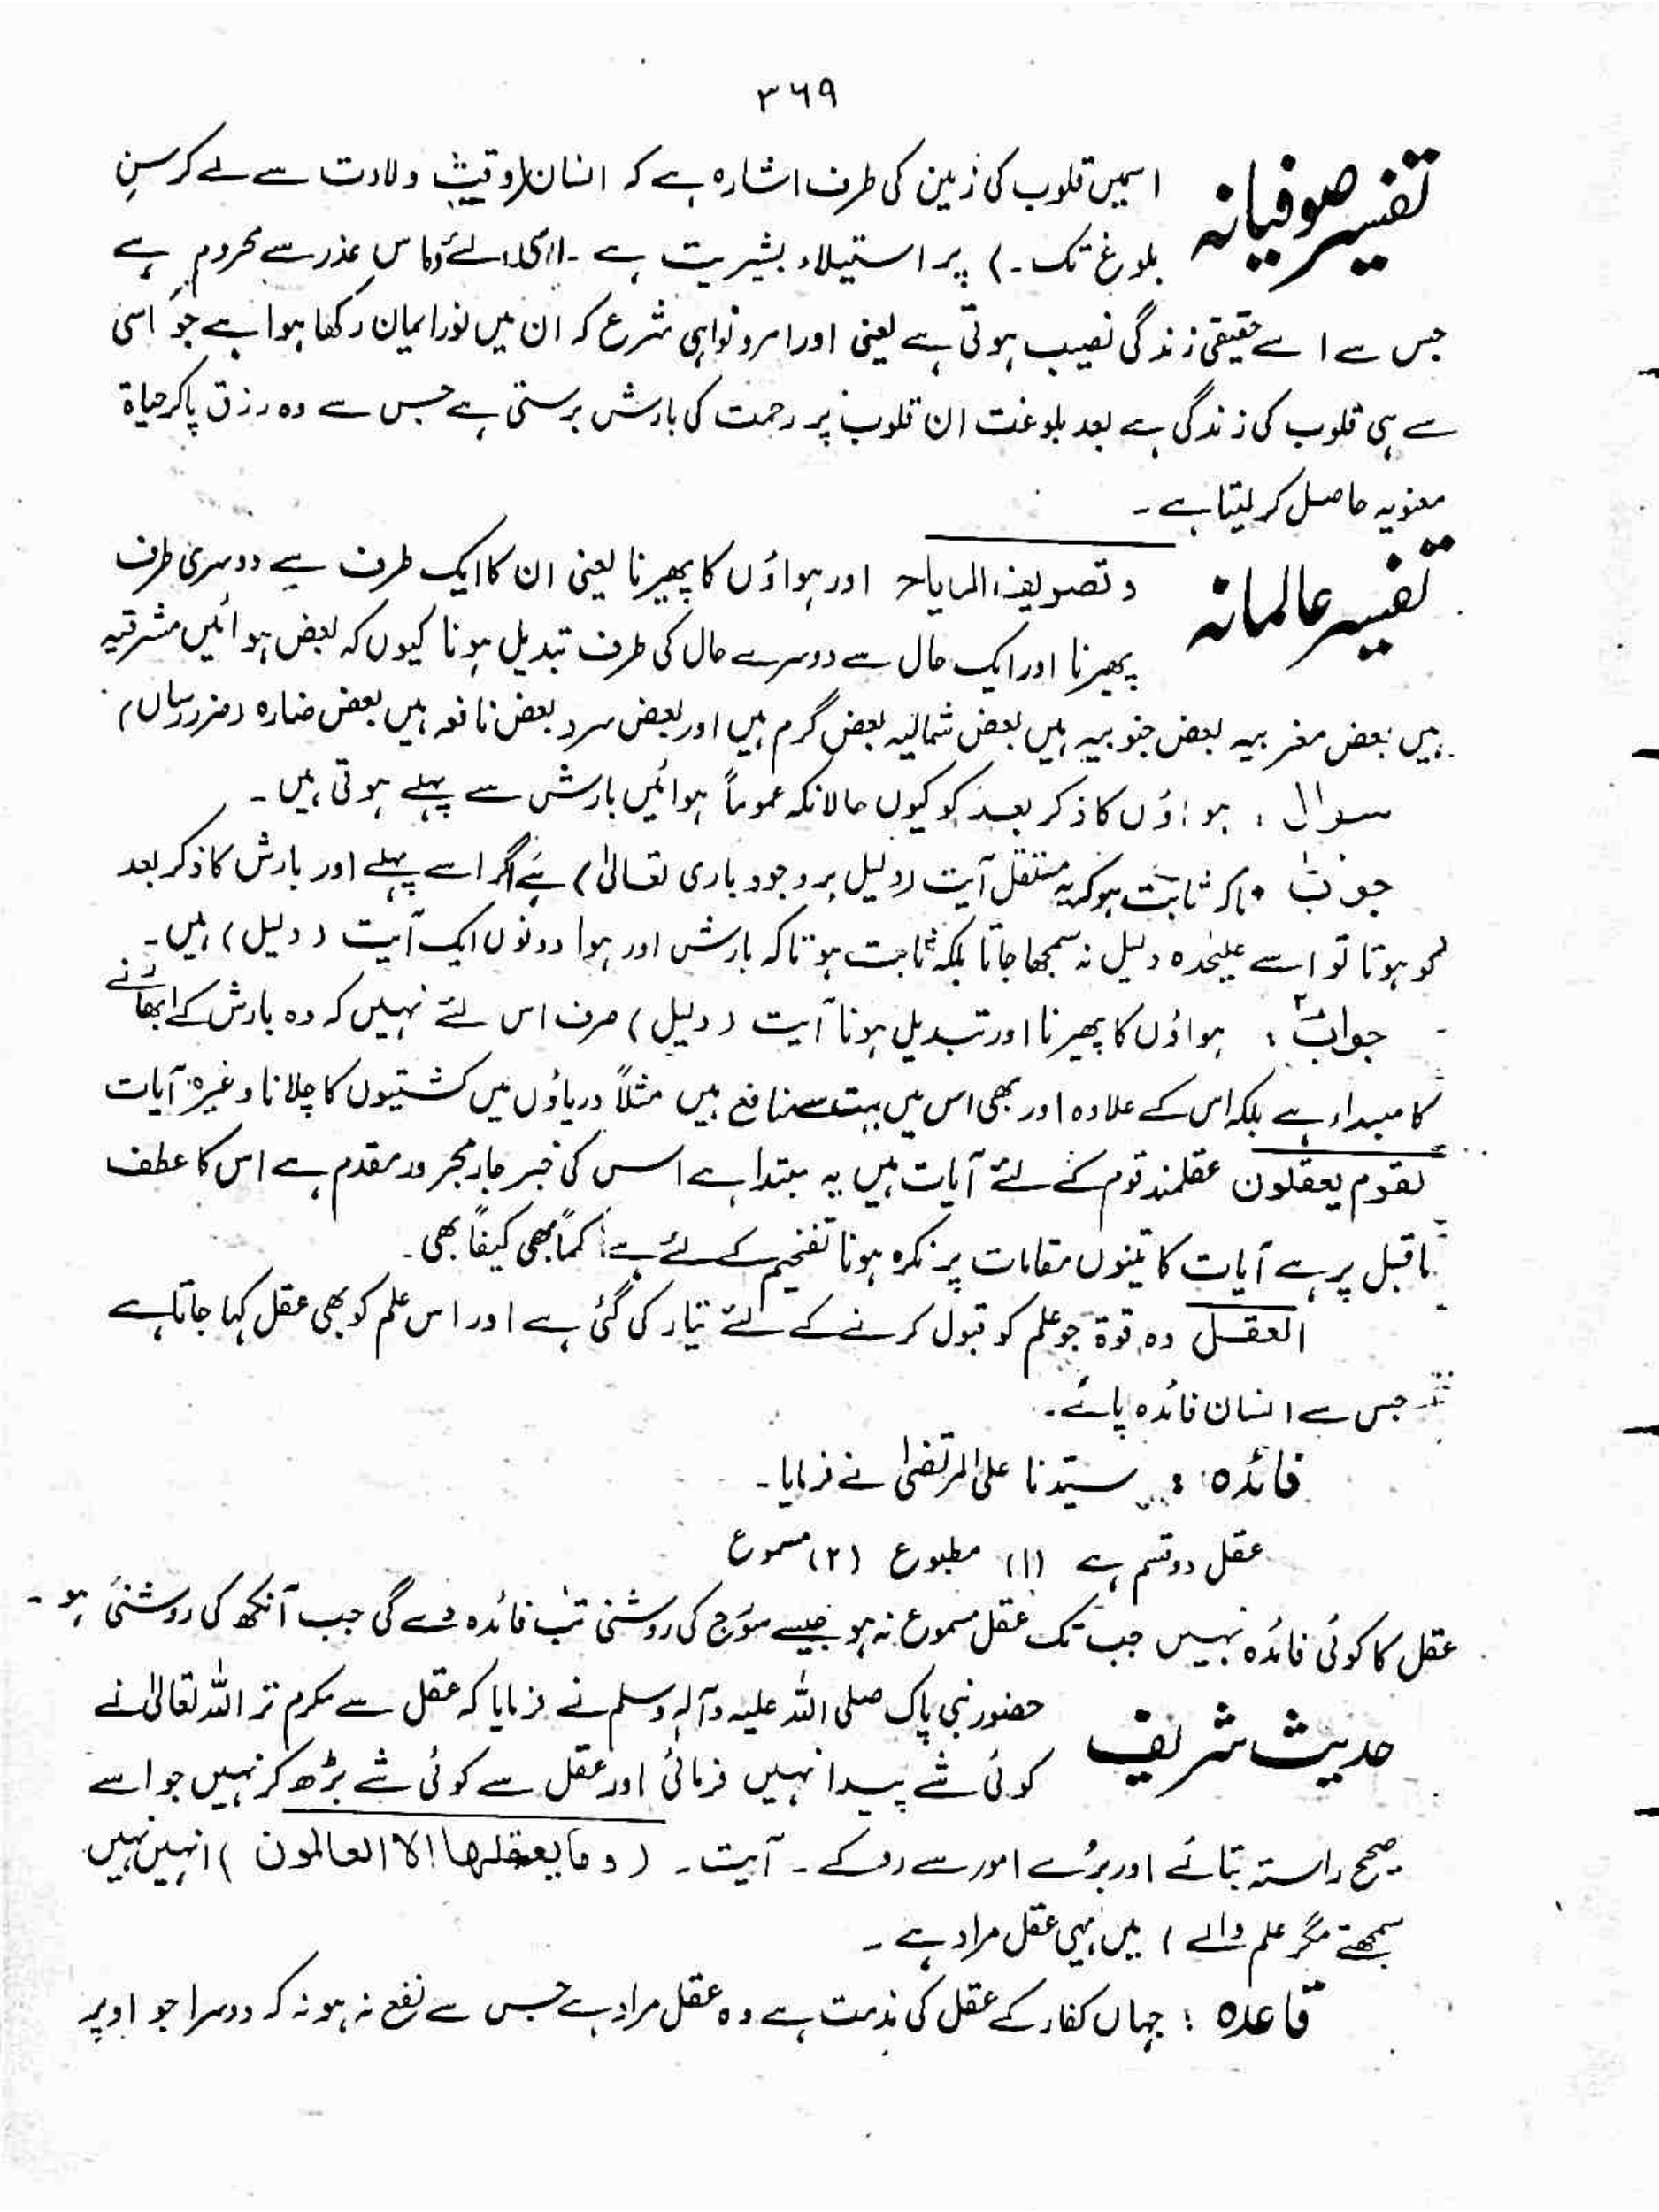 ۳۶۹
تفسیر صوفیانہ اسمیں قلوب کی زمین کی طرف اشارہ ہے کہ انسان (وقت ولادت سے لے کر سنِ
بلوغ تک۔) پر استیلاء بشریت ہے۔ اسی لئے اس عذر سے محروم ہے
جس سے اسے حقیقی زندگی نصیب ہوتی ہے یعنی اورامر و نواہی شرع کہ ان میں نورایمان رکھا ہوا ہے جو اسی
سے ہی قلوب کی زندگی ہے بعد بلوغت ان قلوب پر رحمت کی بارش برستی ہے جس سے وہ رزق پاکر حیاۃ
معنویہ حاصل کر لیتا ہے۔
تفسیر عالمانہ و تصریف الریاح اور ہواؤں کا پھیرنا یعنی ان کا ایک طرف سے دوسری طرف
پھیرنا اور ایک حال سے دوسرے حال کی طرف تبدیل ہونا کیوں کہ بعض ہوائیں مشرقیہ
ہیں بعض مغربیہ بعض جنوبیہ ہیں بعض شمالیہ بعض گرم ہیں اور بعض سرد بعض نافعہ ہیں بعض ضارہ (ضرررساں)
سوال : ہواؤں کا ذکر بعد کو کیوں حالانکہ عموماً ہوائیں بارش سے پہلے ہوتی ہیں۔
جواب تاکہ ثابت ہو کہ یہ مستقل آیت (دلیل بر وجود باری تعالیٰ) ہے اگر اسے پہلے اور بارش کا ذکر بعد
کو ہوتا تو اسے علیٰحدہ دلیل نہ سمجھا جاتا بلکہ ثابت ہوتا کہ بارش اور ہوا دونوں ایک آیت (دلیل) ہیں۔
جواب۲ : ہواؤں کا پھیرنا اور تبدیل ہونا آیت (دلیل) صرف اس لئے نہیں کہ وہ بارش کے ابھارنے
کا مبداء ہے بلکہ اس کے علاوہ اور بھی اس میں بہت سے منافع ہیں مثلاً دریاؤں میں کشتیوں کا چلانا وغیرہ آیات
لقوم یعقلون عقلمند قوم کے لئے آیات ہیں یہ مبتدا ہے اس کی خبر جار مجرور مقدم ہے اس کا عطف
ماقبل پر ہے آیات کا تینوں مقامات پر نکرہ ہونا تفخیم کے لئے ہے کماً بھی کیفاً بھی۔
العقل وہ قوۃ جو علم کو قبول کرنے کے لئے تیار کی گئی ہے اور اس علم کو بھی عقل کہا جاتا ہے
جس سے انسان فائدہ پائے۔
فائدہ : سیّدنا علی المرتضیٰ نے فرمایا۔
عقل دو قسم ہے (۱) مطبوع (۲) مسموع
عقل کا کوئی فائدہ نہیں جب تک عقل مسموع نہ ہو جیسے سورج کی روشنی تب فائدہ دے گی جب آنکھ کی روشنی ہو۔
حدیث شریف حضور نبی پاک صلی اللہ علیہ وآلہ وسلم نے فرمایا کہ عقل سے مکرم تر اللہ تعالیٰ نے
کوئی شے پیدا نہیں فرمائی اور عقل سے کوئی شے بڑھ کر نہیں جو اسے
صحیح راستہ بتائے اور برُے امور سے روکے۔ آیت۔ (وما یعقلہا الا العالمون) انہیں نہیں
سمجھتے مگر علم والے) میں یہی عقل مراد ہے۔
قاعدہ : جہاں کفار کے عقل کی مذمت ہے وہ عقل مراد ہے جس سے نفع نہ ہو نہ کہ دوسرا جو اوپر